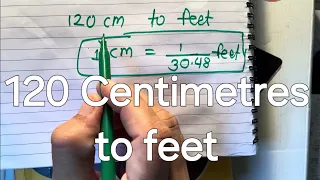 120 cm to feet
1 cm = 1/30.48 feet
120 Centimetres
to feet